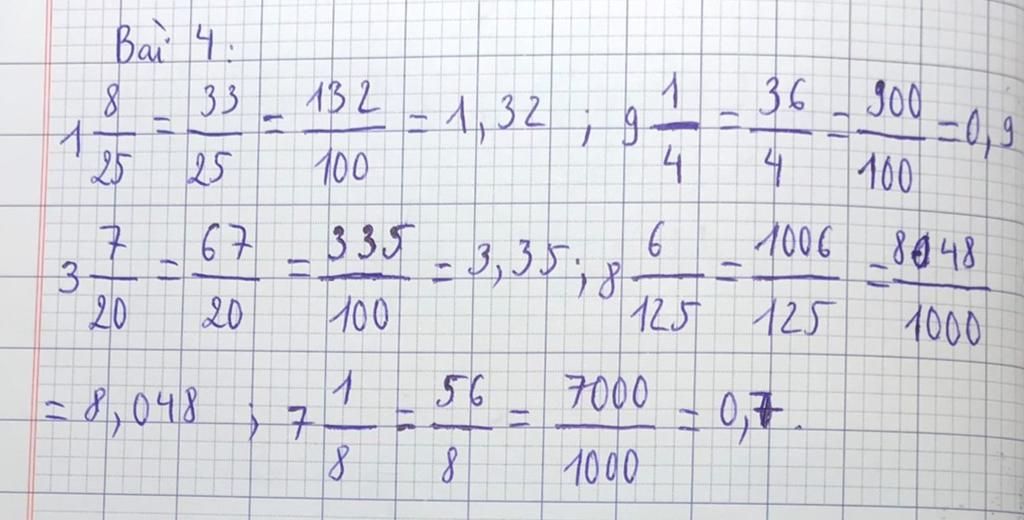 Bài 4:
1 8/25 = 33/25 = 132/100 = 1,32 ; 9 1/4 = 36/4 = 900/100 = 0,9
3 7/20 = 67/20 = 335/100 = 3,35 ; 8 6/125 = 1006/125 = 8048/1000
= 8,048 ; 7 1/8 = 56/8 = 7000/1000 = 0,7.